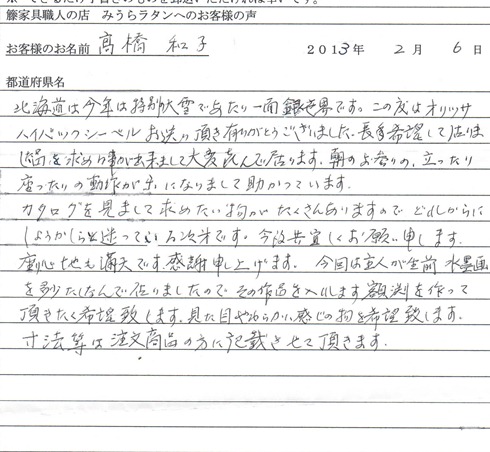 籐家具職人の店 みうらラタンへのお客様の声
お客様のお名前 高橋 和子 2013年 2月 6日
都道府県名
北海道は今年は特別大雪であたり一面銀世界です。この度はオリッサ
ハイバックシーベルお送り頂き有りがとうございました。長年希望して居りま
した品を求める事が出来まして大変喜んで居ります。朝のお参りの、立ったり
座ったりの動作が楽になりまして助かっています。
カタログを見まして求めたい物がたくさんありますのでどれからに
しようかしらと迷っている次第です。今後共宜しくお願い申します。
座り心地も満天です。感謝申し上げます。今回は主人が生前水墨画
を多たしなんで在りましたのでその作品を入れします額渕を作って
頂きたく希望致します。見た目やわらかい感じの物を希望致します。
寸法等は注文商品の方に記載させて頂きます。